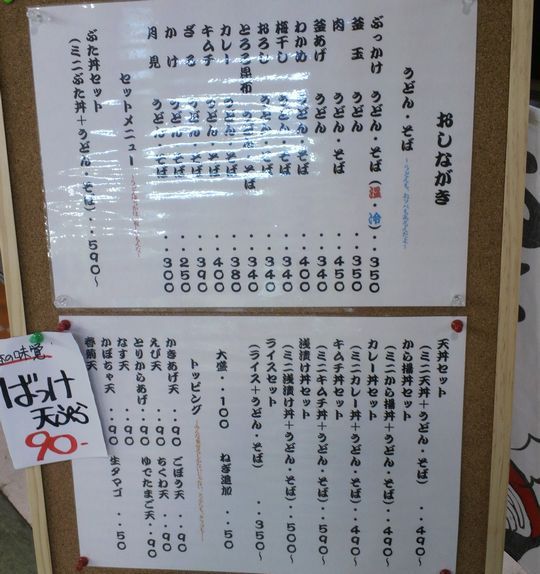 おしながき
うどん・そば
ぶっかけ うどん・そば（温・冷）・・３５０
釜玉 うどん ・・３５０
肉 うどん・そば ・・４５０
釜あげ うどん ・・３４０
わかめ うどん・そば ・・４００
梅干し うどん・そば ・・３４０
おろし うどん・そば ・・３４０
とろろ昆布 うどん・そば ・・３４０
カレー うどん・そば ・・３８０
キムチ うどん・そば ・・４００
ざる うどん・そば ・・３９０
かけ うどん・そば ・・２５０
月見 うどん・そば ・・３００
セットメニュー
ぶた丼セット
（ミニぶた丼＋うどん・そば）・・５９０～
天丼セット
（ミニ天丼＋うどん・そば）・・４９０～
から揚丼セット
（ミニから揚丼＋うどん・そば）・・４９０～
カレー丼セット
（ミニカレー丼＋うどん・そば）・・４９０～
キムチ丼セット
（ミニキムチ丼＋うどん・そば）・・５９０～
浅漬け丼セット
（ミニ浅漬け丼＋うどん・そば）・・５００～
ライスセット
（ライス＋うどん・そば）・・３５０～
大盛・・１００ ねぎ追加・・５０
トッピング
かきあげ天・・９０ ごぼう天・・９０
えび天・・９０ ちくわ天・・９０
とりからあげ・・９０ ゆでたまご天・・９０
なす天・・９０
かぼちゃ天・・９０ 生タマゴ・・５０
春菊天
の味覚
ばっけ
天ぷら
90-